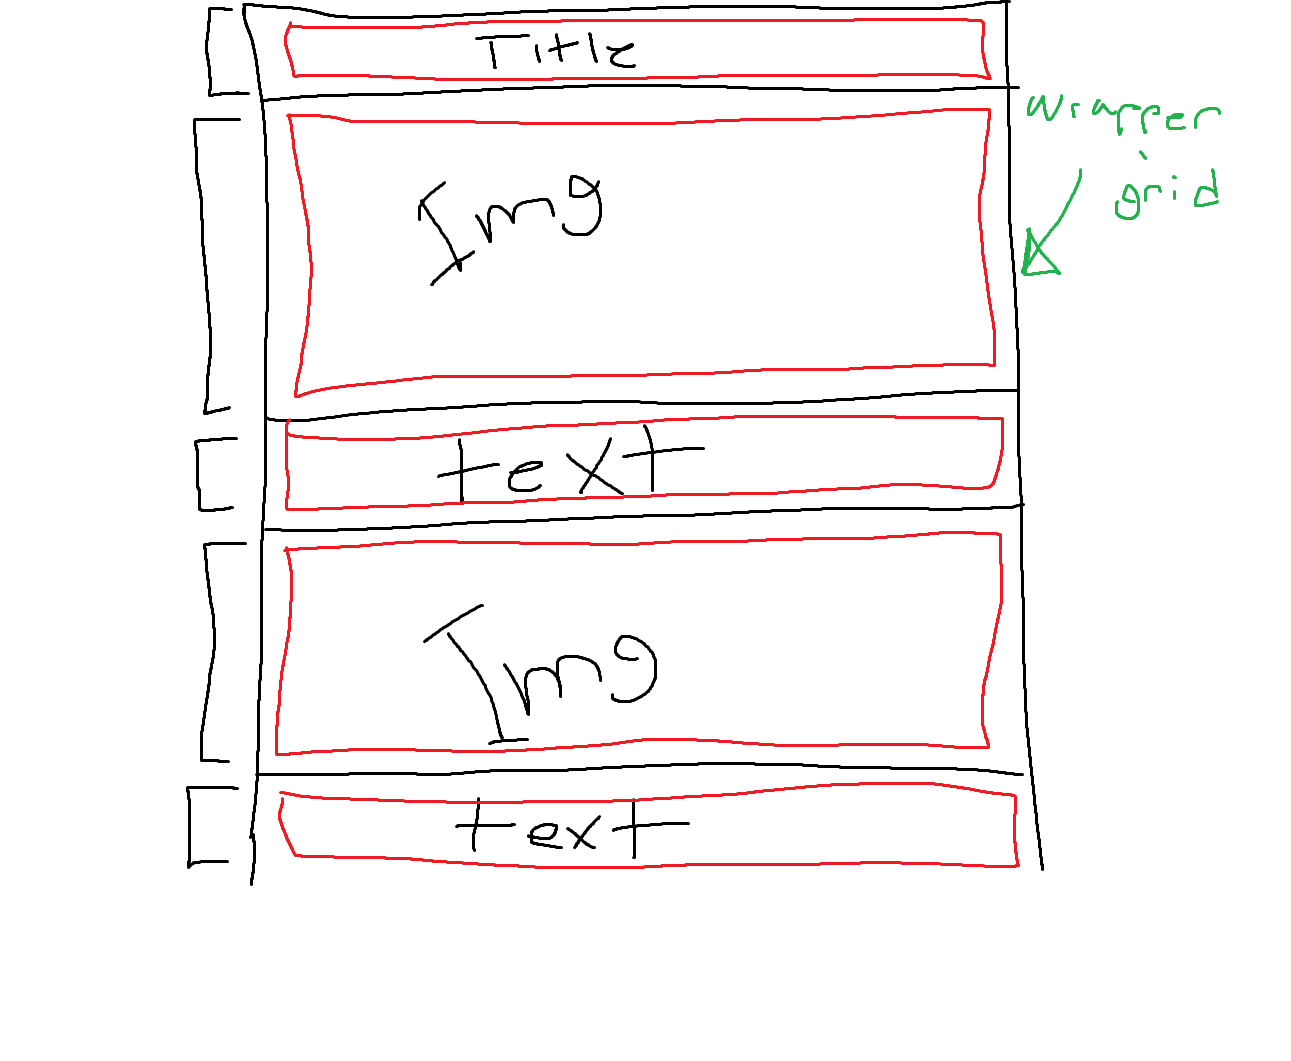 Title
wrapper
grid
Img
text
Img
text